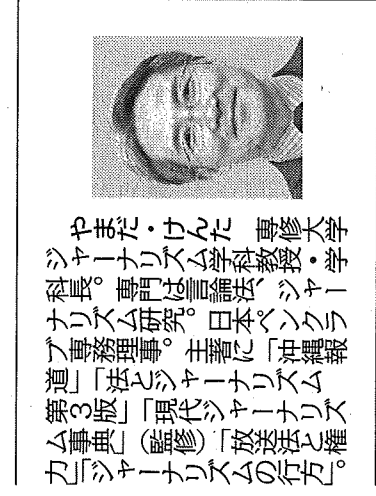 やまだ・けんた　専修大学
ジャーナリズム学科教授・学
科長。専門は言論法、ジャー
ナリズム研究。日本ペンクラ
ブ専務理事。主著に「沖縄報
道」「法とジャーナリズム
第3版」「現代ジャーナリズ
ム事典」（監修）「放送法と権
力」「ジャーナリズムの行方」。